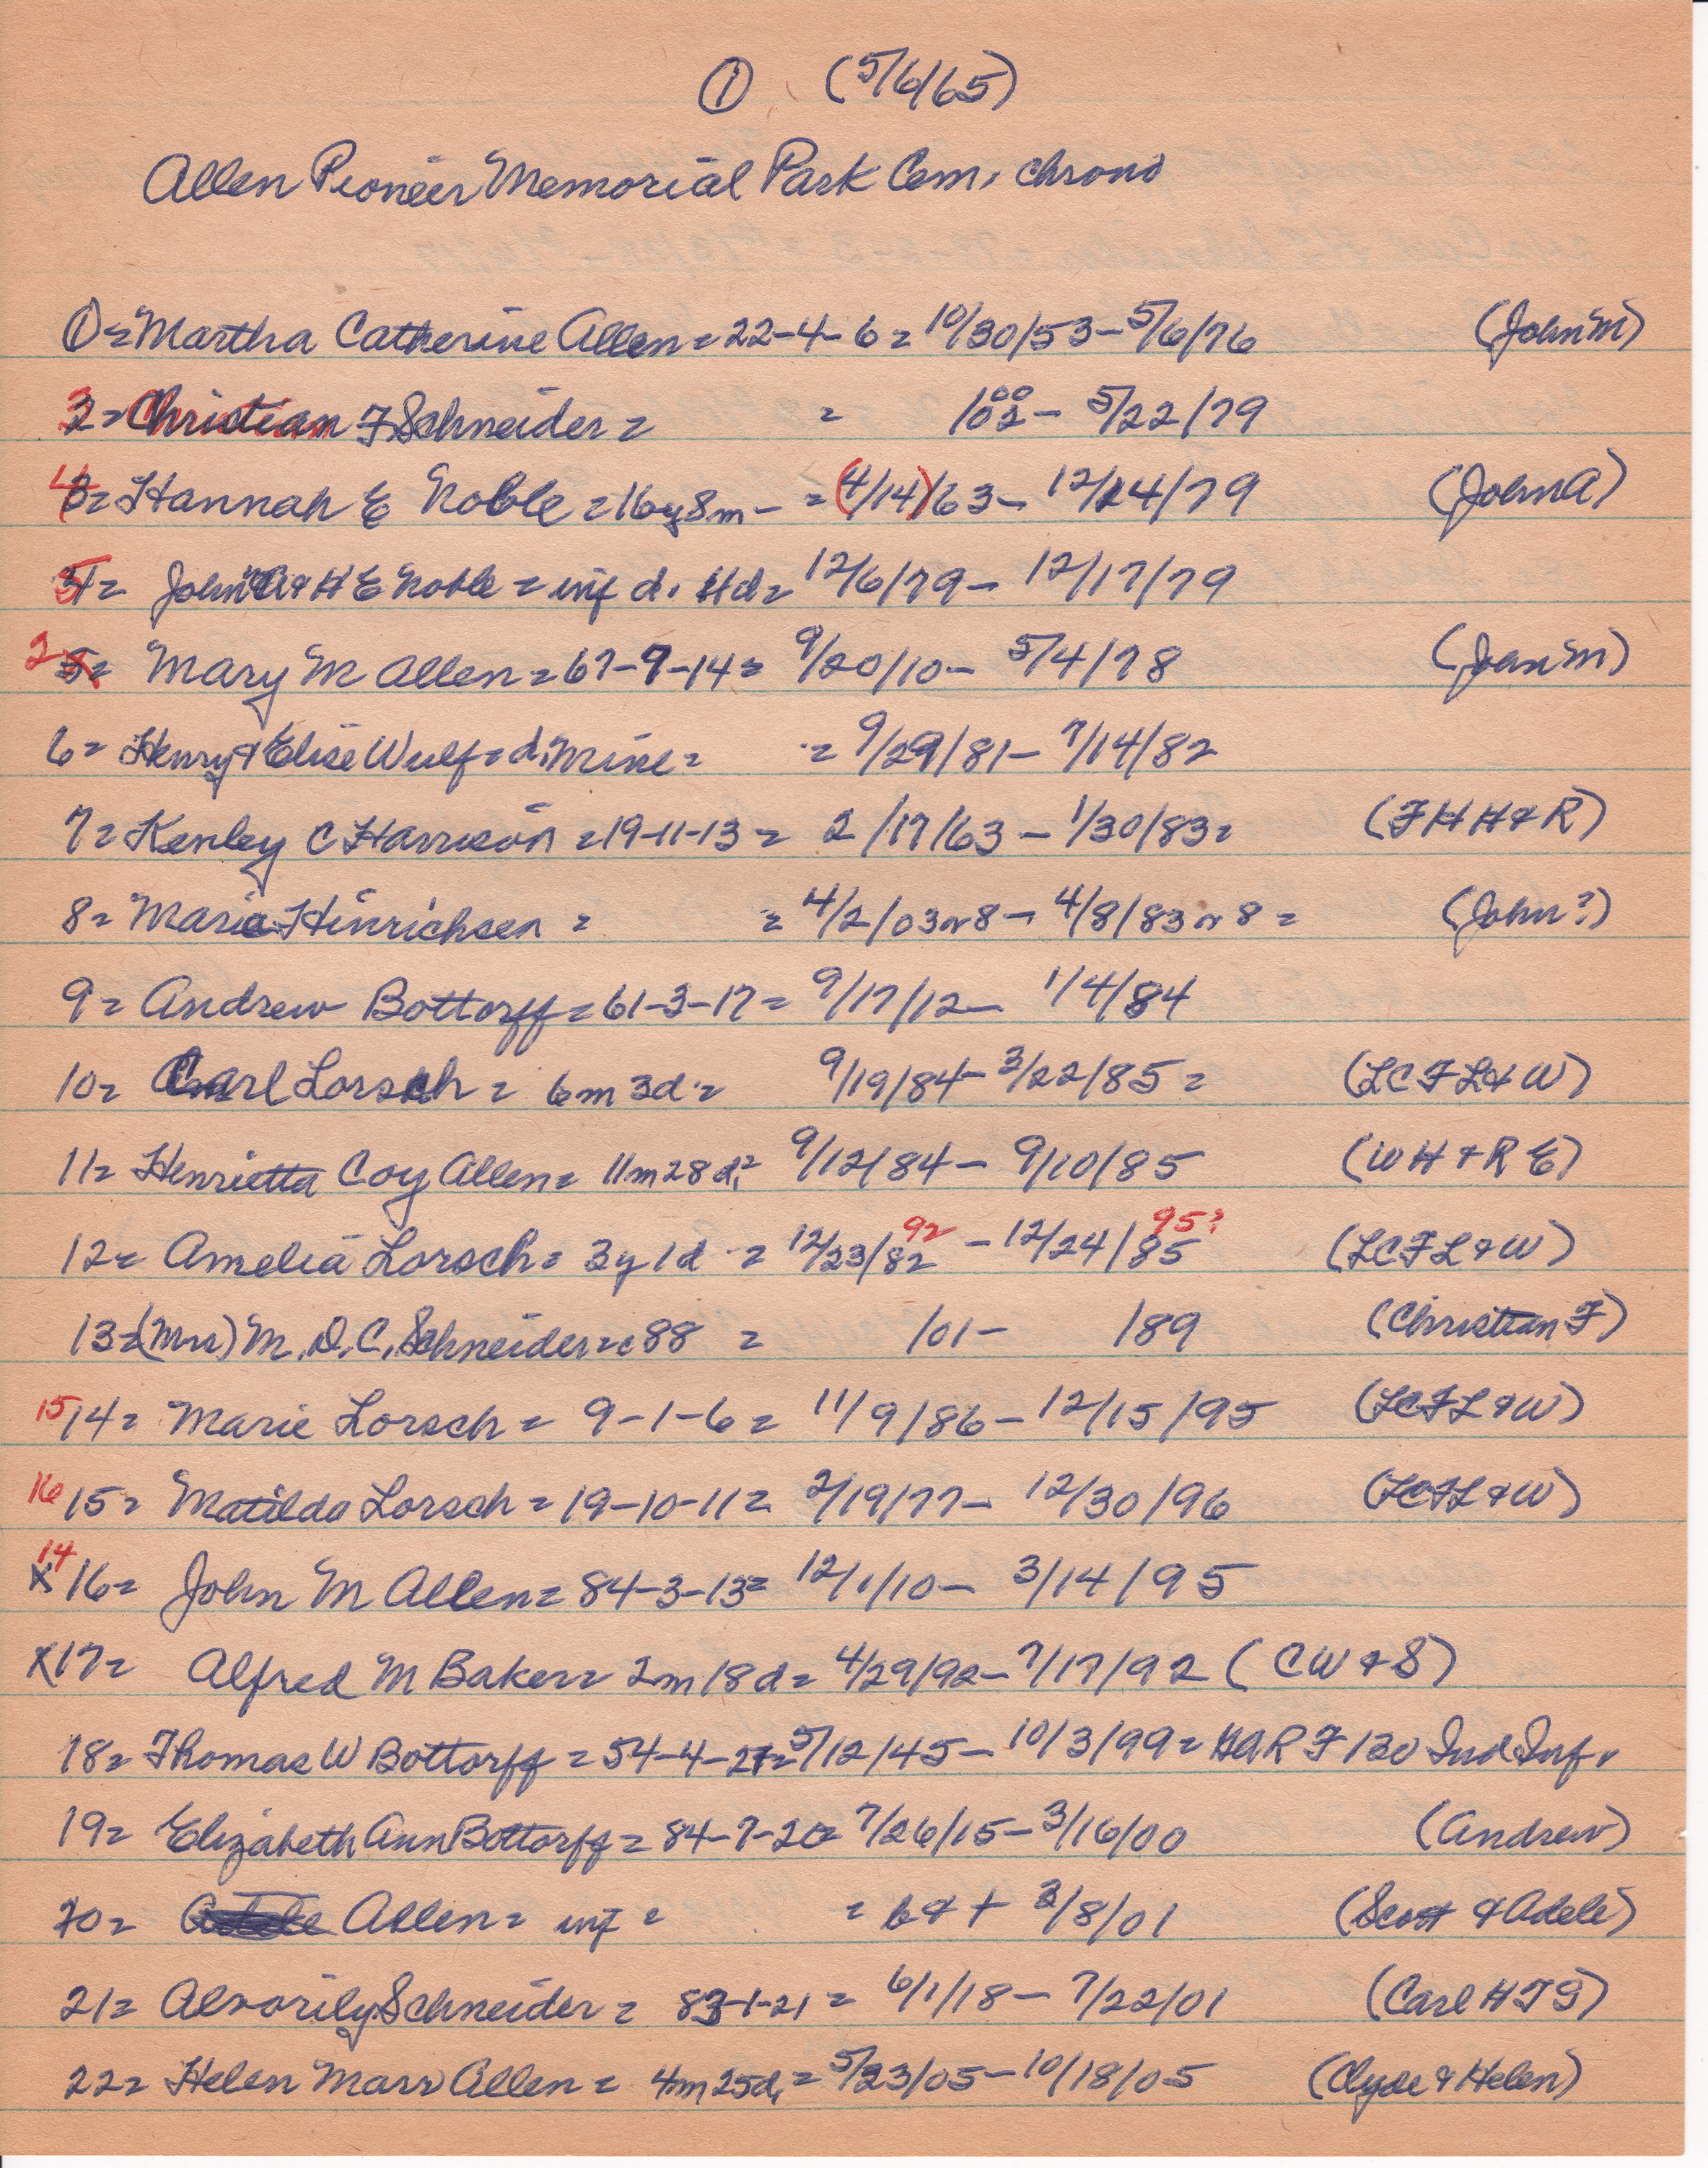 ① (5/6/65)
Allen Pioneer Memorial Park Cem. chrono
①= Martha Catherine Allen = 22-4-6 = 10/30/53 - 5/6/76 (John M)
3 2= Christian F Schneider = = 1802 00 - 5/22/79
4 3= Hannah E Noble = 16y8m - = (4/14)/63 - 12/14/79 (John A)
5 4= John A & H E Noble = inf d. 11d = 12/6/79 - 12/17/79
2 5= Mary M Allen = 67-7-14 = 9/20/10 - 5/4/78 (John M)
6= Henry & Elise Wulf = d. Mine = = 9/29/81 - 7/14/82
7= Kenley C Harrison = 19-11-13 = 2/17/63 - 1/30/83 = (F H H & R)
8= Marie Hinrichsen = = 4/2/03 or 8 - 4/8/83 or 8 = (John?)
9= Andrew Bottorff = 61-3-17 = 9/17/12 - 1/4/84
10= Carl Lorsch = 6m 3d = 9/19/84 - 3/22/85 = (LCFL & W)
11= Henrietta Coy Allen = 11m28d. = 9/12/84 - 9/10/85 (W H & R E)
12= Amelia Lorsch = 3y 1d = 12/23/82 92 - 12/24/85 95? (LCFL & W)
13=(Mrs) M. D. C. Schneider = c88 = /01 - /89 (Christian F)
15 14= Marie Lorsch = 9-1-6 = 11/9/86 - 12/15/95 (LCFL & W)
16 15= Matilda Lorsch = 19-10-11 = 2/19/77 - 12/30/96 (LCFL & W)
14 x 16= John M Allen = 84-3-13 = 12/1/10 - 3/14/95
x17= Alfred M Baker = 2m18d = 4/29/92 - 7/17/92 (C W & S)
18= Thomas W Bottorff = 54-4-21 = 5/12/45 - 10/3/99 = GAR F 130 Ind Inf.
19= Elizabeth Ann Bottorff = 84-7-20 7/26/15 - 3/16/00 (Andrew)
20= Allen = inf = = b & + 3/8/01 (Scott & Adele)
21= Alvorily Schneider = 83-1-21 = 6/1/18 - 7/22/01 (Carl H T G)
22= Helen Marr Allen = 4m25d. = 5/23/05 - 10/18/05 (Clyde & Helen)